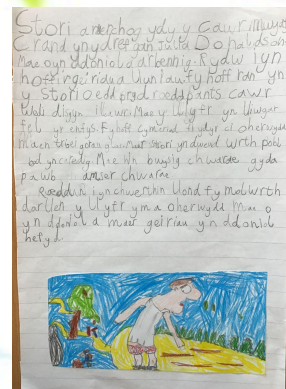 Stori am enchog ydy y Cawr mwyaf
Crand yn y dref gan Julia Donaldson
Mae o yn ddoniol a arbennig. Rydw i yn
hoffi'r geiriau a lluniau fy hoff ran yn
y stori oedd bryd roedd pants cawr
disgyn i lawr. Mae y llyfr yn lliwgar
fel yr enfys. Fy hoff cymeriad ydy'r ci oherwydd
mae'n troelli o gwmpas yn dweud wrth pobl
bod yn caredig. Mae yn chwarae gyda
pawb amser chwarae.
Roeddwn i yn chwerthin llond fy mol wrth
darllen y llyfr yma oherwydd mae o
yn ddoniol a mae'r geiriau yn ddoniol
hefyd.